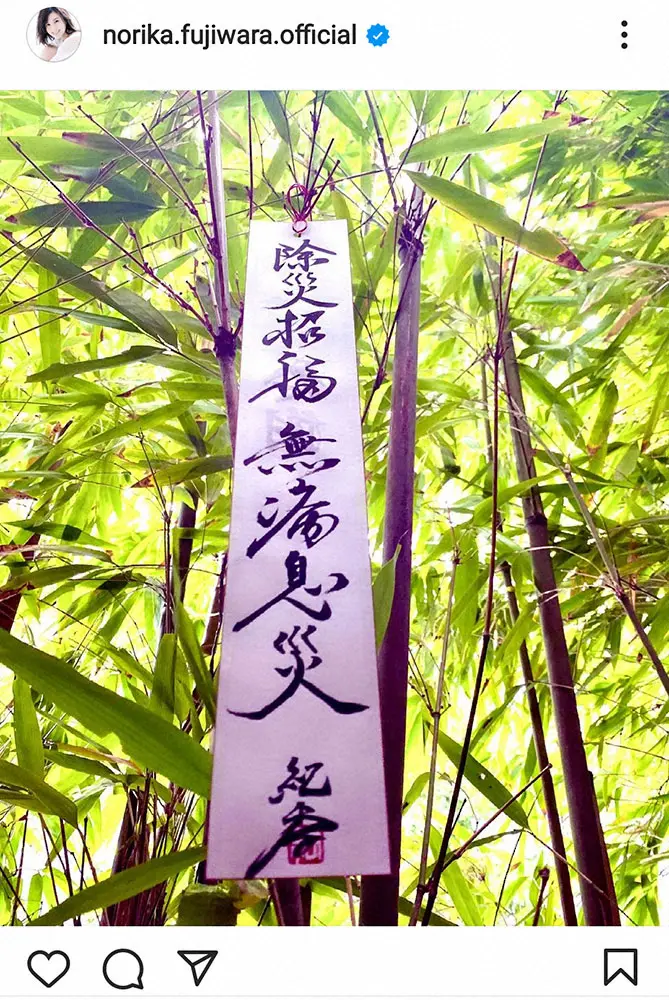 norika.fujiwara.official
除災招福
無病息災
紀香